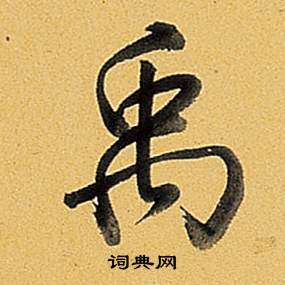 禹
词典网